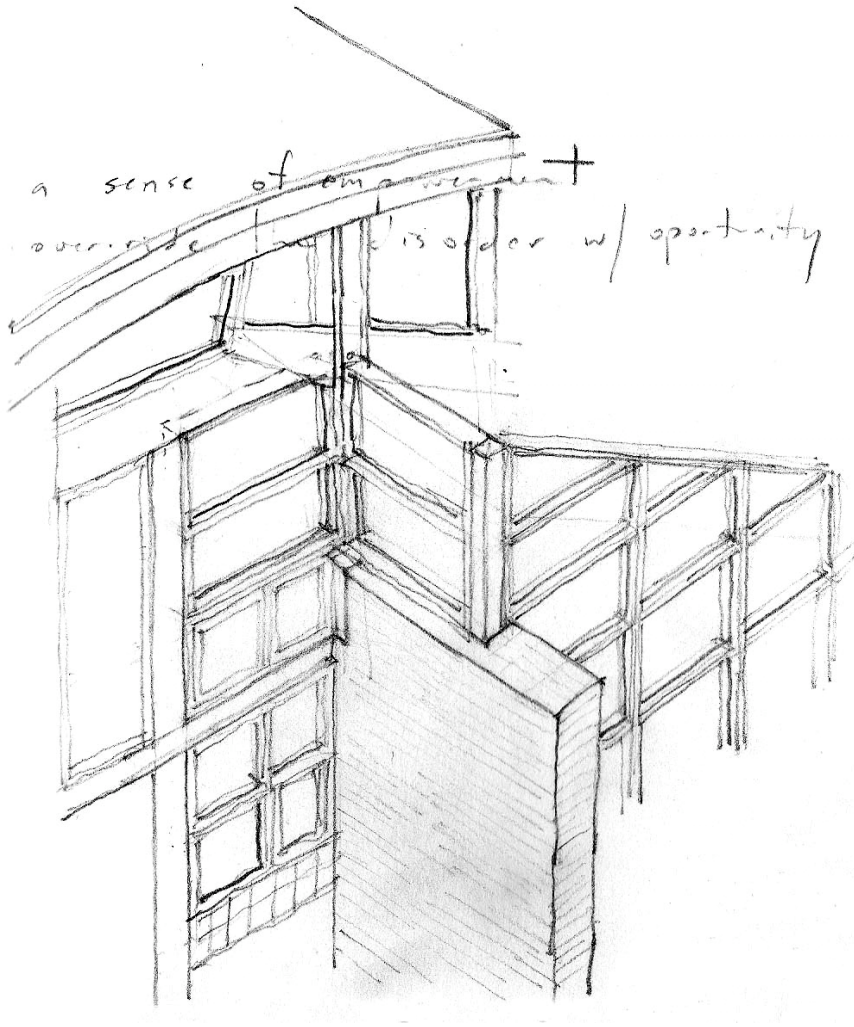 a sense of empowerment
override disorder w/ oportunity